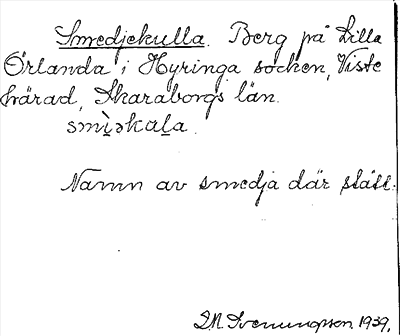 Smedjekulla. Berg på Lilla
Örlanda i Hyringa socken, Viste
härad, Skaraborgs län.
smìəkala.
Namn av smedja där stått.
Svenungsson 1939.